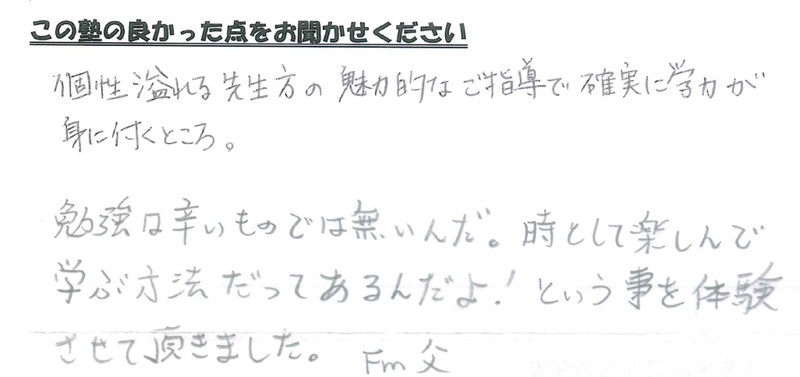 この塾の良かった点をお聞かせください
個性溢れる先生方の魅力的なご指導で確実に学力が
身に付くところ。
勉強は辛いものでは無いんだ。時として楽しんで
学ぶ方法だってあるんだよ！という事を体験
させて頂きました。 Fm 父